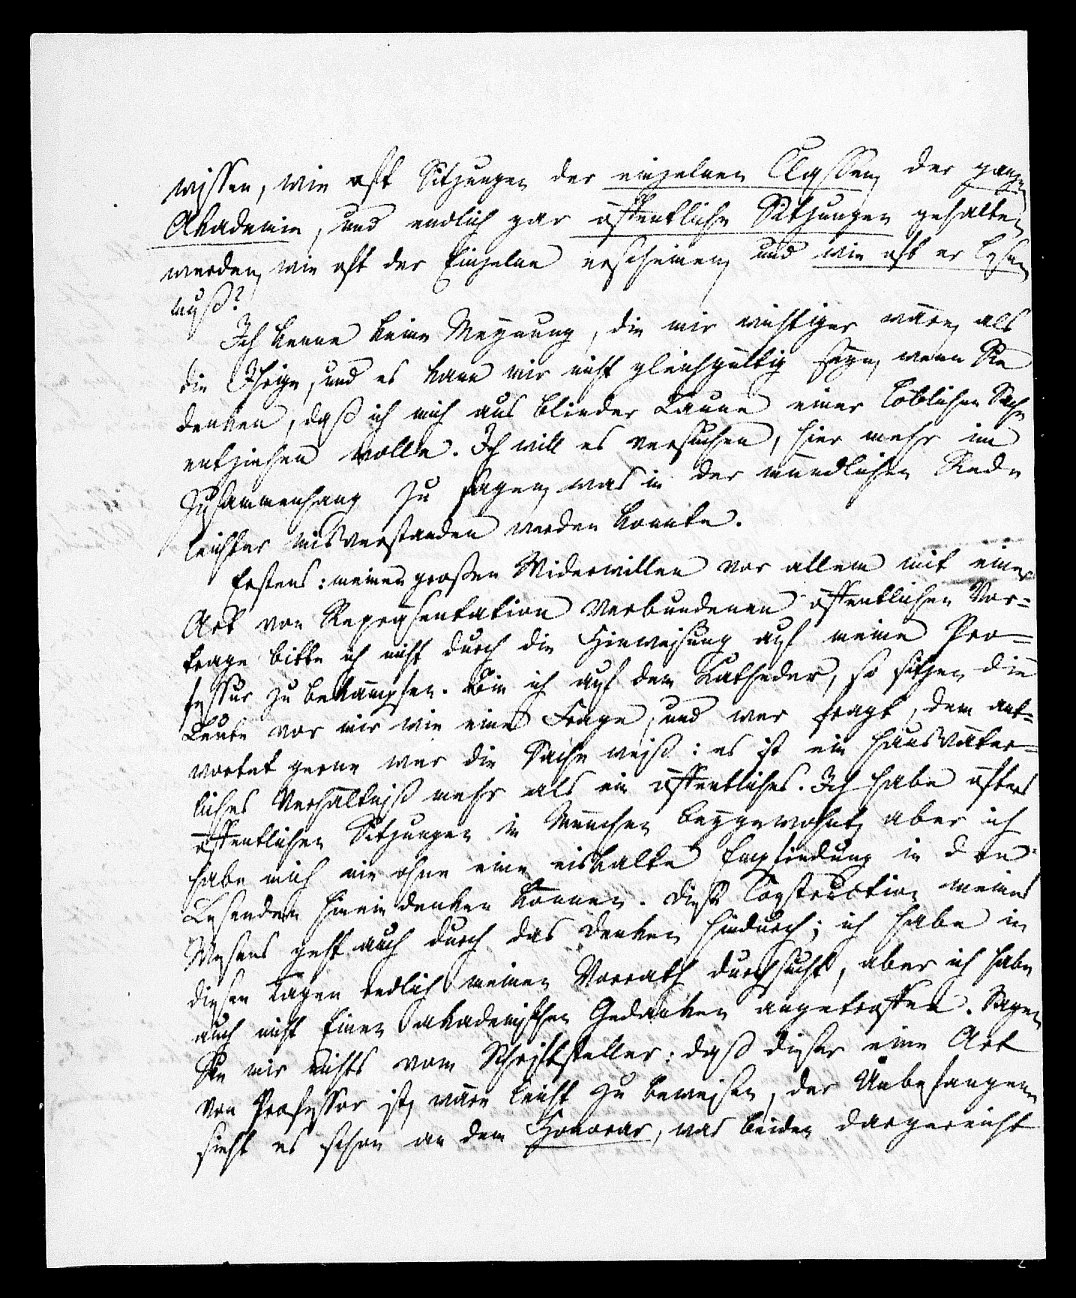 wissen, wie oft Sitzungen der einzelnen Classen, der ganzen
Akademie, und endlich gar öffentliche Sitzungen gehalten
werden, wie oft der Einzelne erscheinen, und wie oft er lesen
muß?
Ich kenne keine Meynung, die mir wichtiger wäre, als
die Ihrige, und es kann mir nicht gleichgültig seyn, wenn Sie
denken, daß ich mich aus blinder Laune einer löblichen Sache
entziehen wolle. Ich will es versuchen, hier mehr im
Zusammenhang zu sagen, was in der mündlichen Rede
leichter misverstanden werden konnte.
Erstens: meinen großen Widerwillen vor allem mit einer
Art von Repräsentation verbundenen öffentlichen Vor-
trage bitte ich nicht durch die Hinweisung auf meine Pro-
fessur zu bekämpfen. Bin ich auf dem Katheder, so sitzen die
Leute vor mir wie eine Frage, und wer fragt, dem ant-
wortet gerne wer die Sache weiß: es ist ein hausväter-
liches Verhältniß mehr als ein öffentliches. Ich habe öfters
öffentlichen Sitzungen in München beygewohnt, aber ich
habe mich nie ohne eine eiskalte Empfindung in den
Lesenden hinein denken können. Diese Construction meines
Wesens geht auch durch das Denken hindurch; ich habe in
diesen Tagen redlich meinen Vorrath durchsucht, aber ich habe
auch nicht Einen akademischen Gedanken angetroffen. Sagen
Sie mir nichts vom Schriftsteller: daß dieser eine Art
von Professor ist, wäre leicht zu beweisen, der Unbefangene
sieht es schon an dem Honorar, was beiden dargereicht